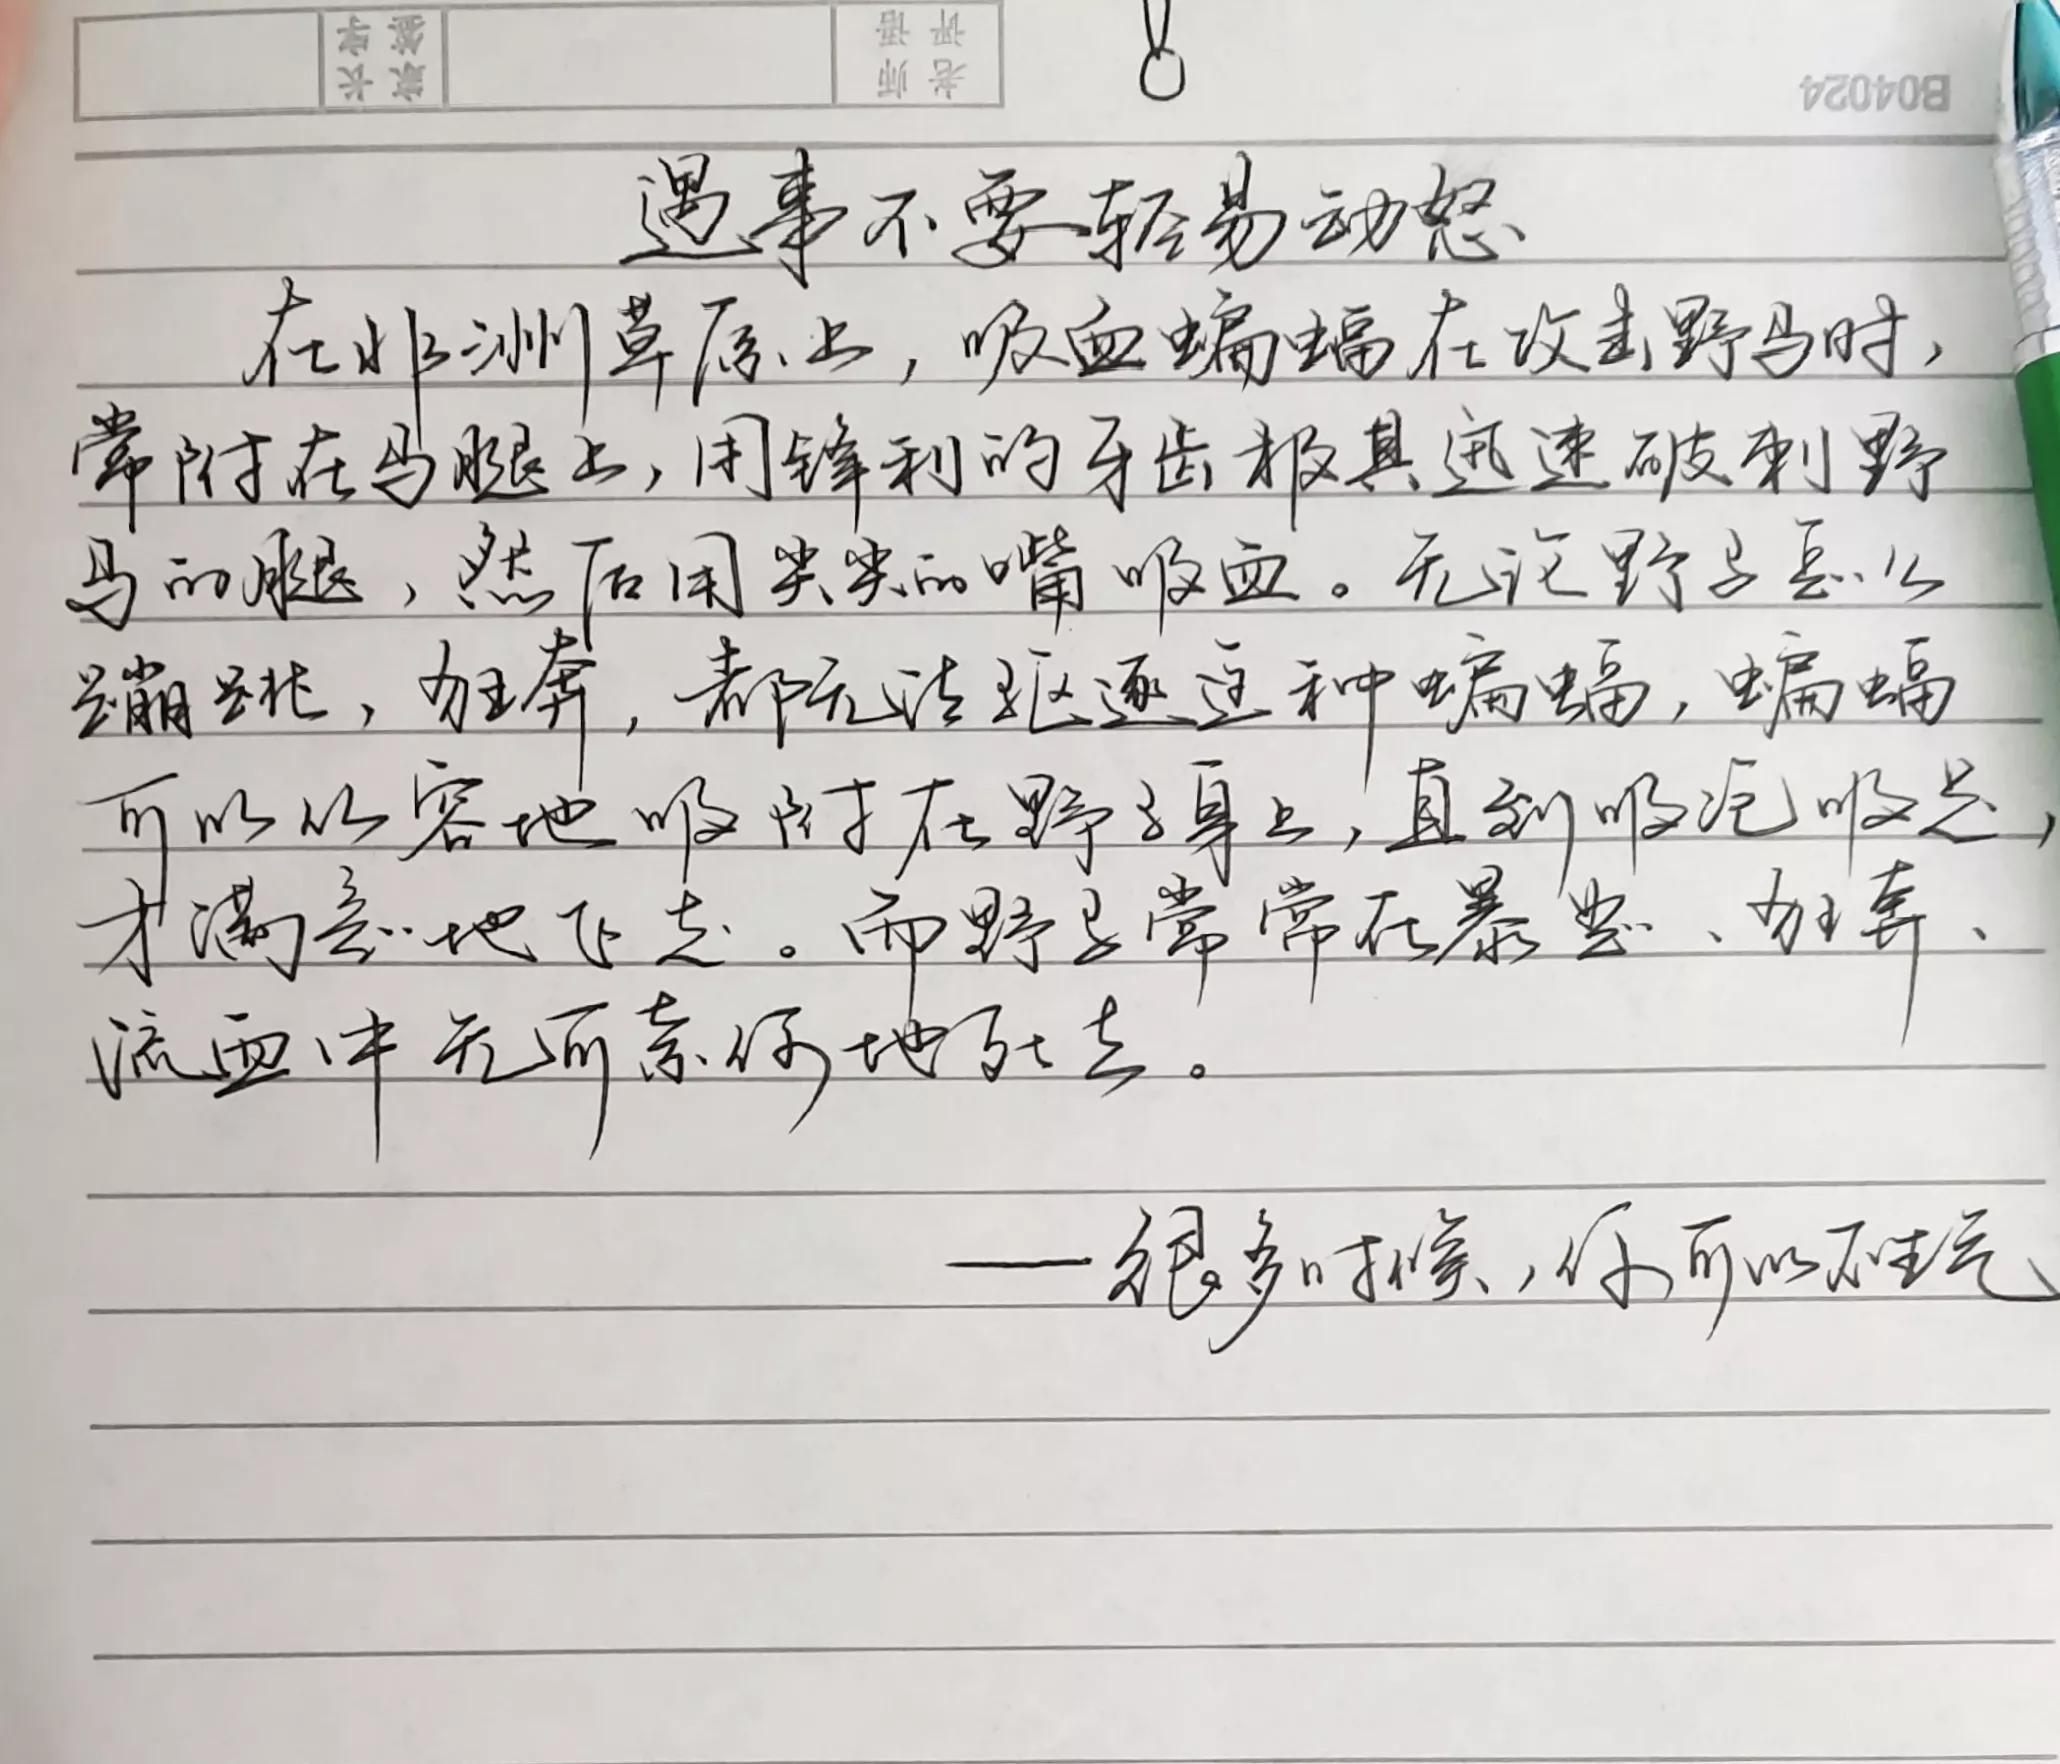 家长签字 老师评语
B04024
遇事不要轻易动怒
在非洲草原上，吸血蝙蝠在攻击野马时，
常附在马腿上，用锋利的牙齿极其迅速破刺野
马的腿，然后用尖尖的嘴吸血。无论野马怎么
蹦跳，狂奔，都无法驱逐这种蝙蝠，蝙蝠
可以从容地吸附在野马身上，直到吸饱吸足，
才满意地飞走。而野马常常在暴怒、狂奔、
流血中无可奈何地死去。
——很多时候，你可以不生气